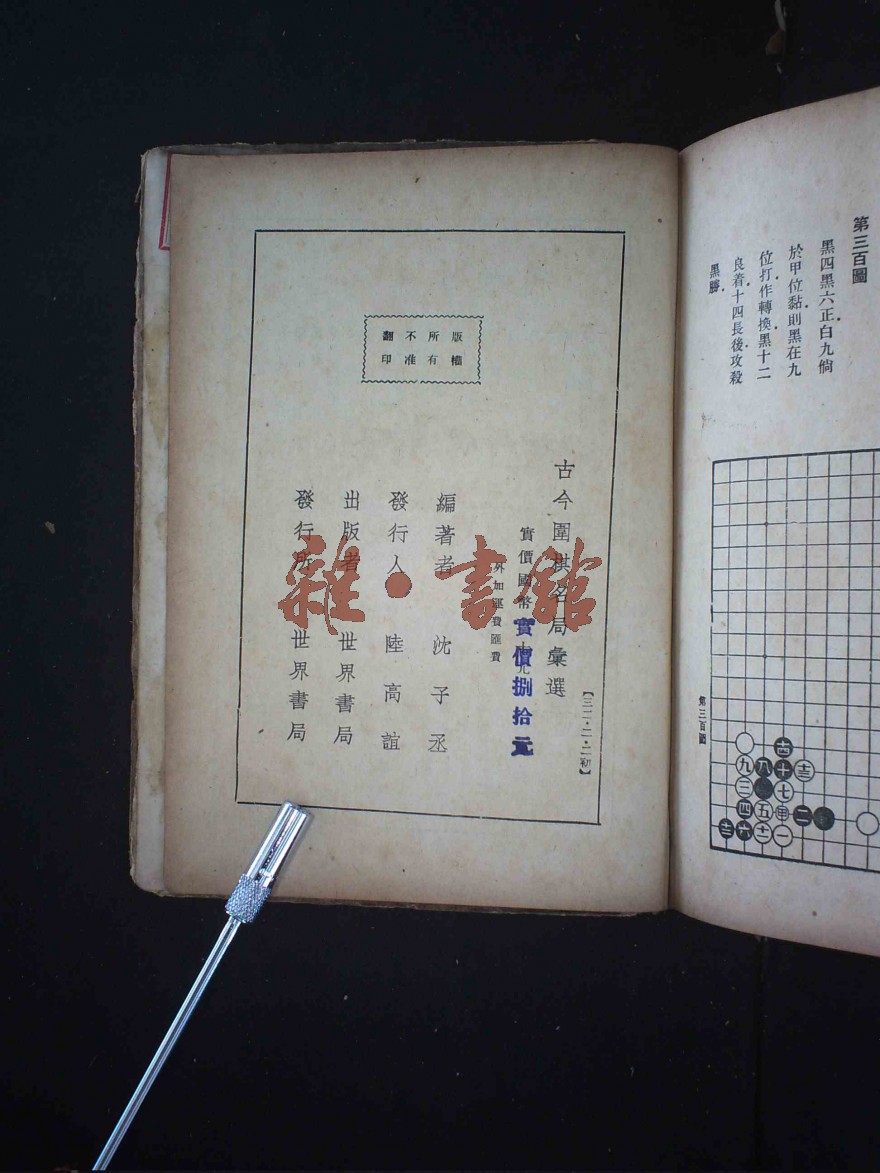 第三百圖
黑四黑六正白九倘
於甲位黏則黑在九
位打作轉換黑十二
良着十四長後攻殺
黑勝
第三百圖
版權所有
不准翻印
古今圍棋名局彙選
【三二・二・二初】
實價國幣
實價捌拾元
外加運費匯費
編著者 沈子丞
發行人 陸高誼
出版者 世界書局
發行所 世界書局
雜・書館